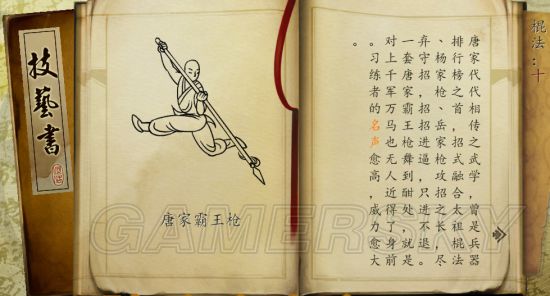 棍法：十
唐家代代相传之武学，曾是兵器
排行榜之首，招式融合太祖棍法
、杨家枪、岳家枪攻招之长，尽
弃守招，招招进逼，只进不退。
一套唐家霸王枪舞到酣处，就是
对上千军万马也无人近得了身前
。习练者的名声愈高，威力愈大
。
唐家霸王枪
技藝書
GAMERSKY